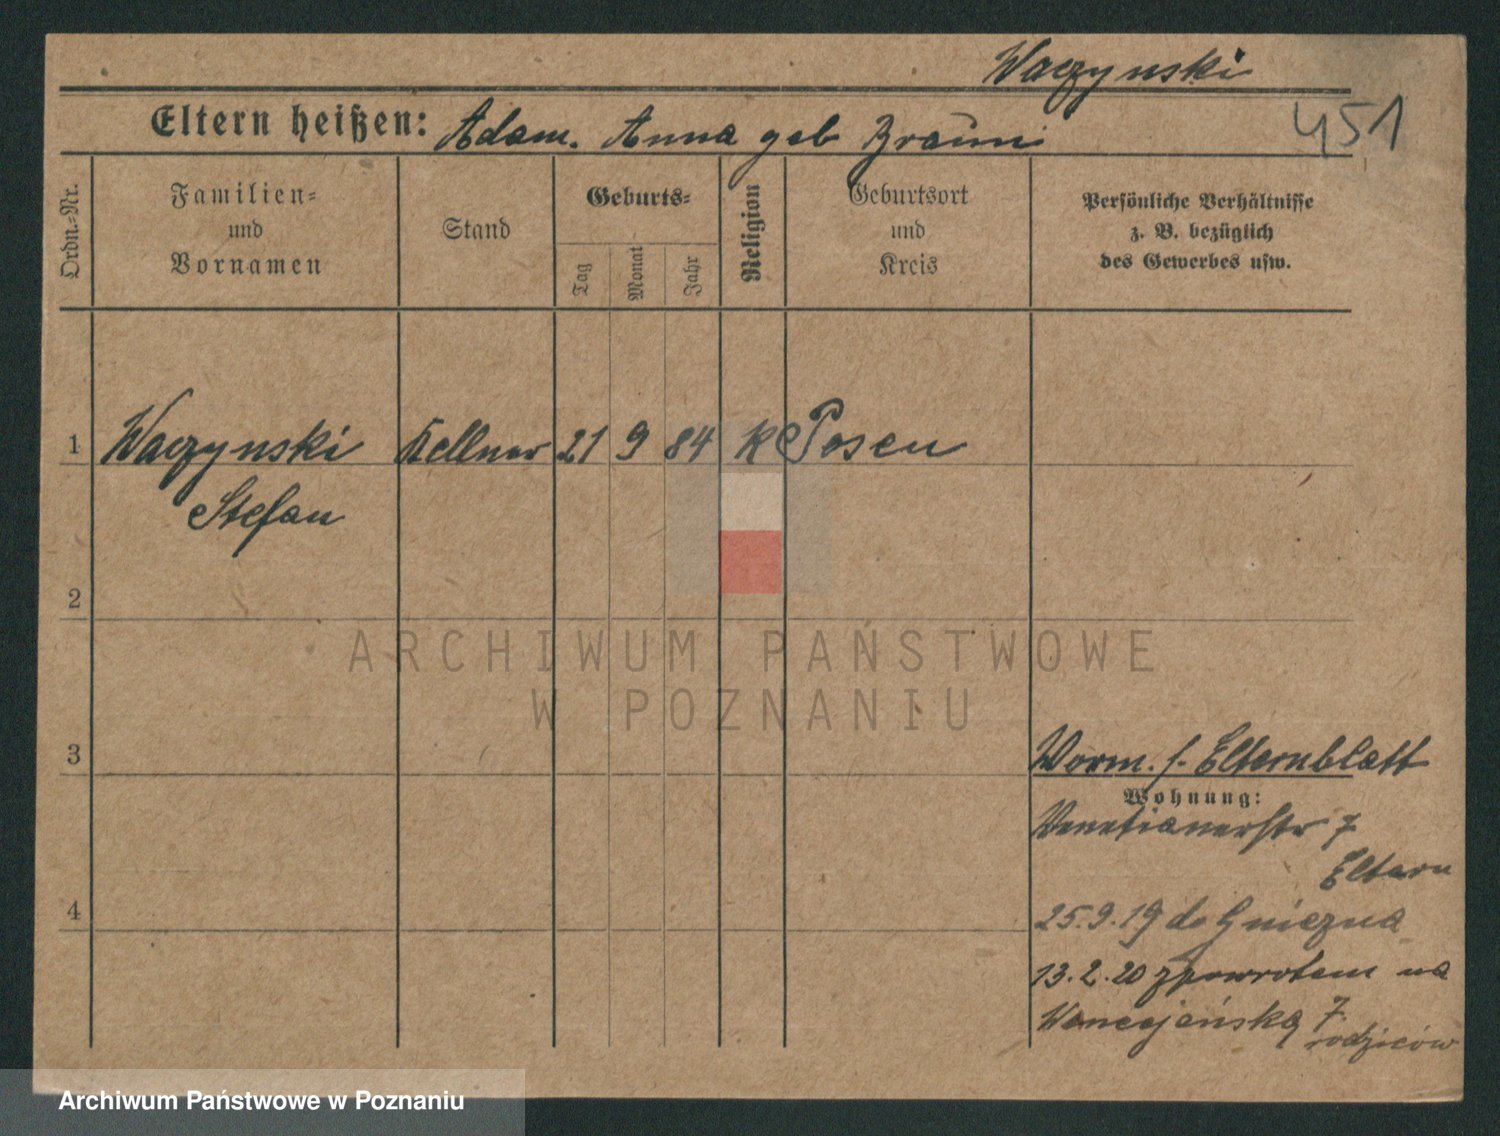 Waczynski
451
Eltern heißen: Adam. Anna geb Brauni
Ordn.=Nr.
Familien=
und
Vornamen
Stand
Geburts=
Tag
Monat
Jahr
Religion
Geburtsort
und
Kreis
Persönliche Verhältnisse
z. B. bezüglich
des Gewerbes usw.
1 Waczynski Kellner 21 9 84 K Posen
Stefan
2
ARCHIWUM PAŃSTWOWE
W POZNANIU
3
Vorm. s. Elternblatt
Wohnung:
Venetianerstr 7
Eltern
4
25.9.19 do Gniezna
13.2.20 zpowrotem na
Wenecjańską 7.
rodziców
Archiwum Państwowe w Poznaniu